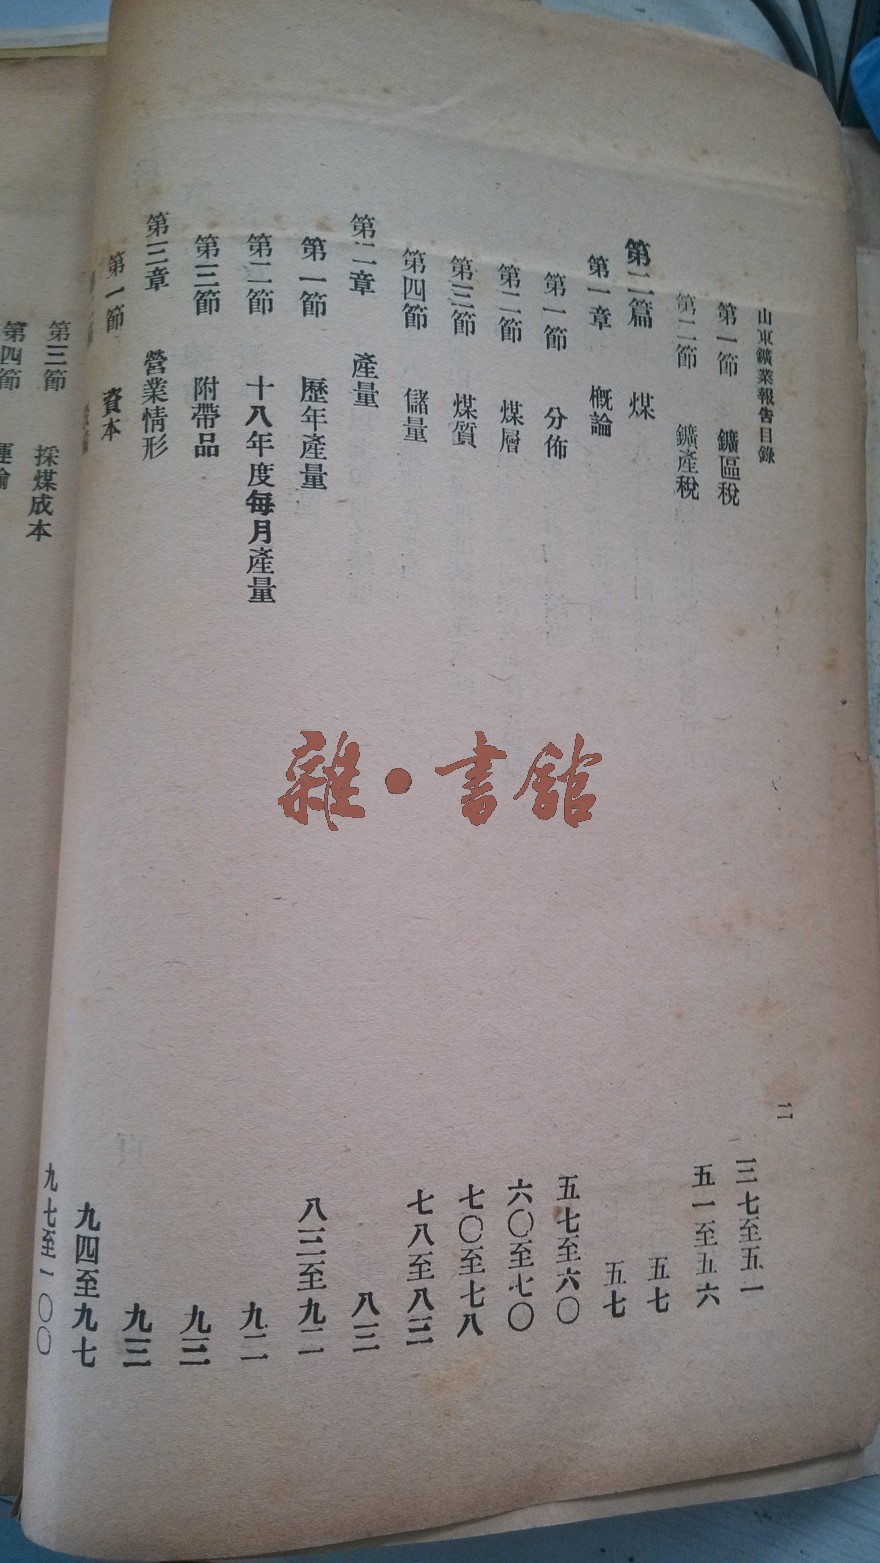 山東鑛業報告目錄 二
第一節 鑛區稅 三七至五一
第二節 鑛產稅 五一至五六
第二篇 煤 五七
第一章 概論 五七
第一節 分佈 五七至六〇
第二節 煤層 六〇至七〇
第三節 煤質 七〇至七八
第四節 儲量 七八至八三
第二章 產量 八三
第一節 歷年產量 八三至九二
第二節 十八年度每月產量 九二
第三節 附帶品 九三
第三章 營業情形 九三
第一節 資本 九四至九七
九七至一〇〇
第三節 採煤成本
第四節 運輸
雜·書館